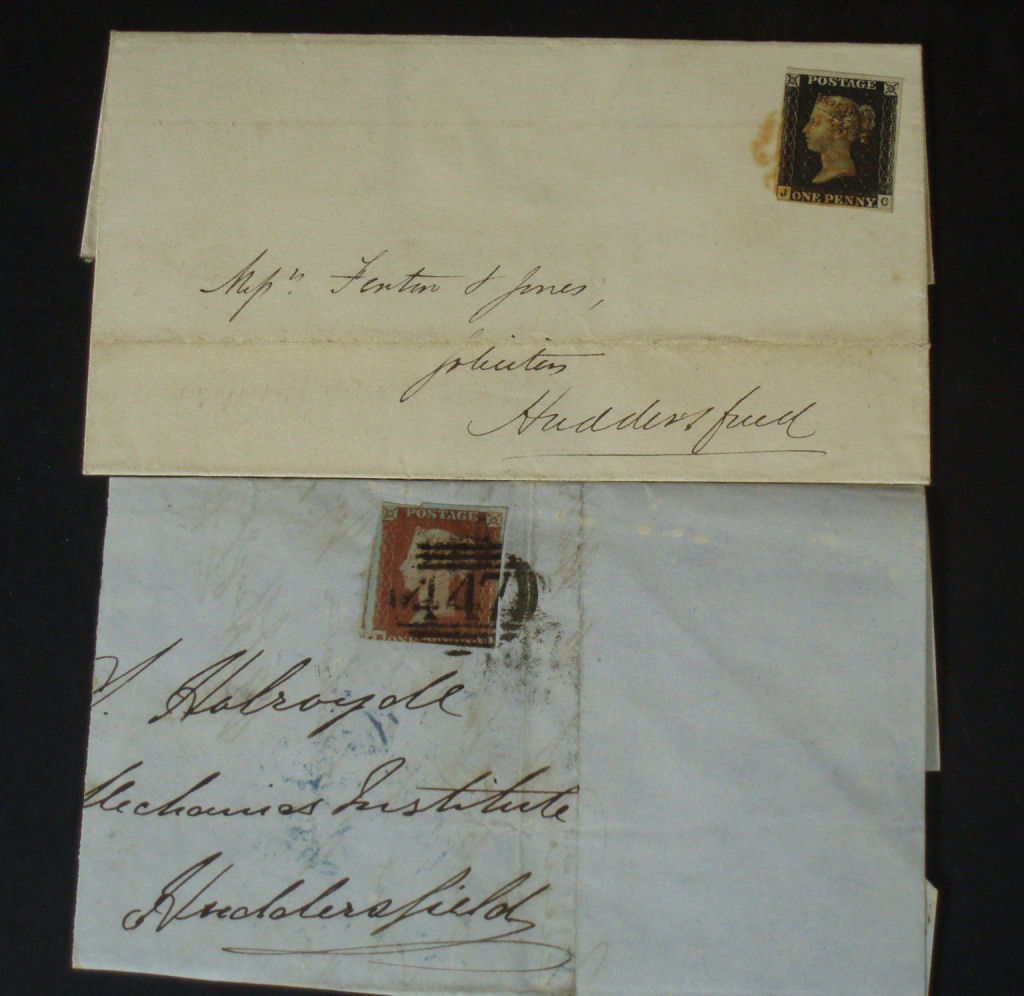 POSTAGE
J ONE PENNY C
Messrs. Fenton & Jones,
Solicitors
Huddersfield
POSTAGE
447
T ONE
Holroyde
Mechanics Institute
Huddersfield